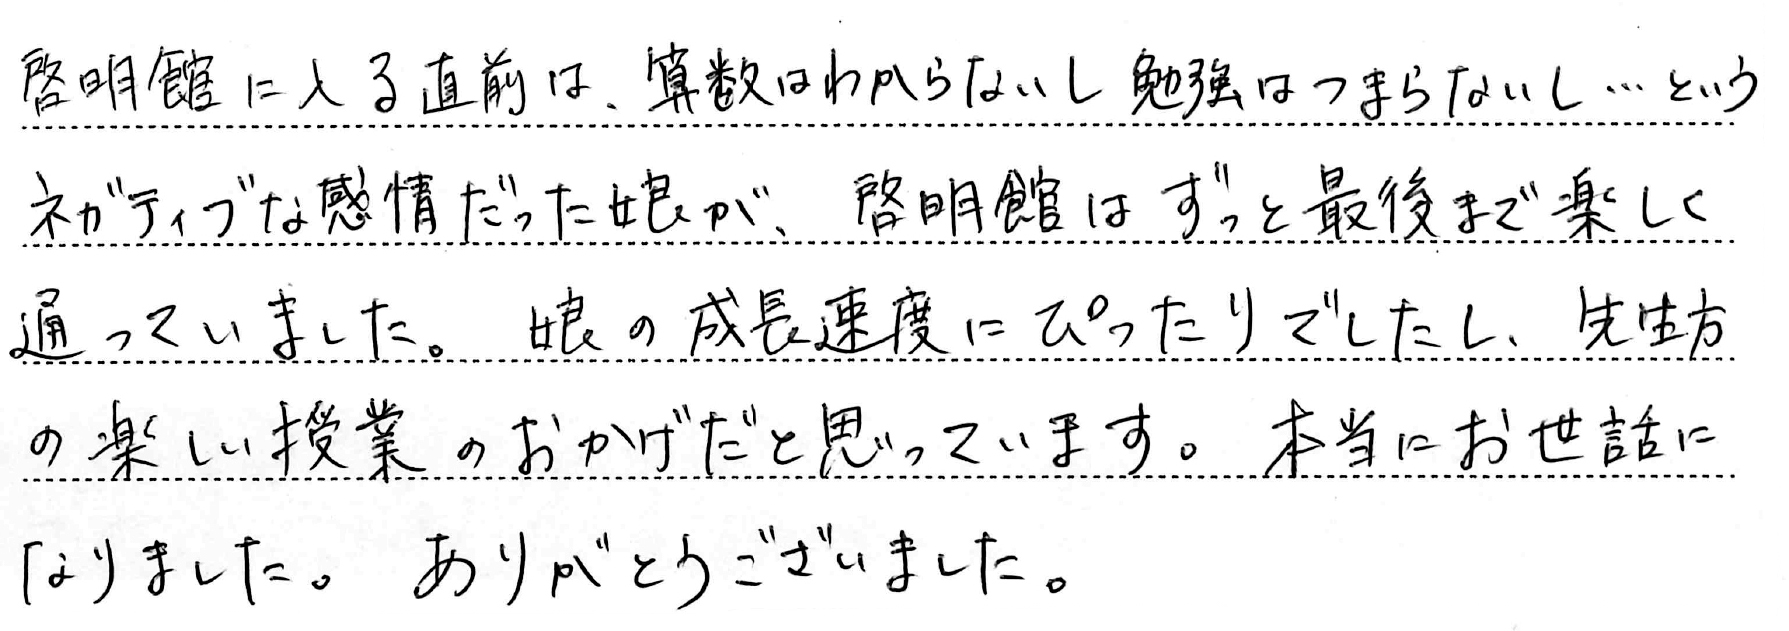 啓明館に入る直前は、算数はわからないし勉強はつまらないし…という
ネガティブな感情だった娘が、啓明館はずっと最後まで楽しく
通っていました。娘の成長速度にぴったりでしたし、先生方
の楽しい授業のおかげだと思っています。本当にお世話に
なりました。ありがとうございました。